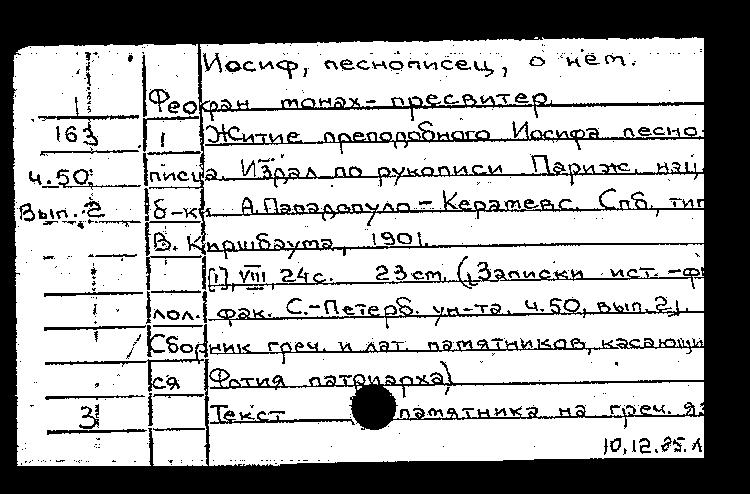 Иосиф, песнописец, о нем.
1 Феофан монах-пресвитер
163 1 Житие преподобного Иосифа песно-
ч.50. писца. Издал по рукописи Париж. нац.
Вып. 2 б-ки А. Пападопуло-Керамевс. Спб, тип
В. Киршбаума, 1901.
[1], VIII, 24с. 23см. (Записки ист.-фи
лол. фак. С.-Петерб. ун-та. ч.50, вып.2,
Сборник греч. и лат. памятников, касающи
ся Фотия патриарха)
3 Текст памятника на греч. яз
10.12.85.